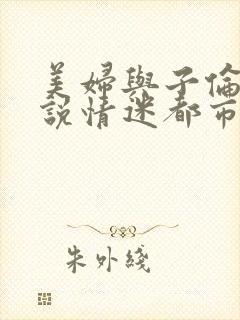 美婦與子倫
說情迷都市
朱外綫